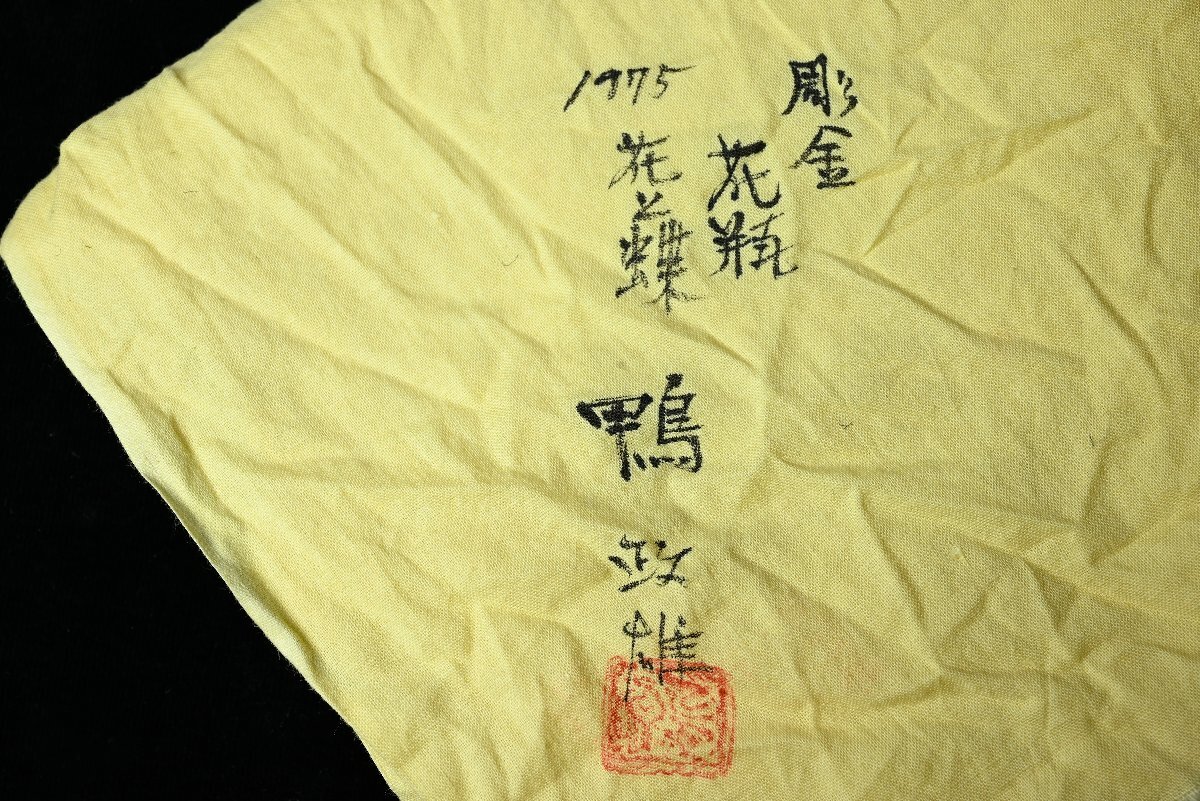 彫金
花瓶
1975
花と蝶
鴨政雄